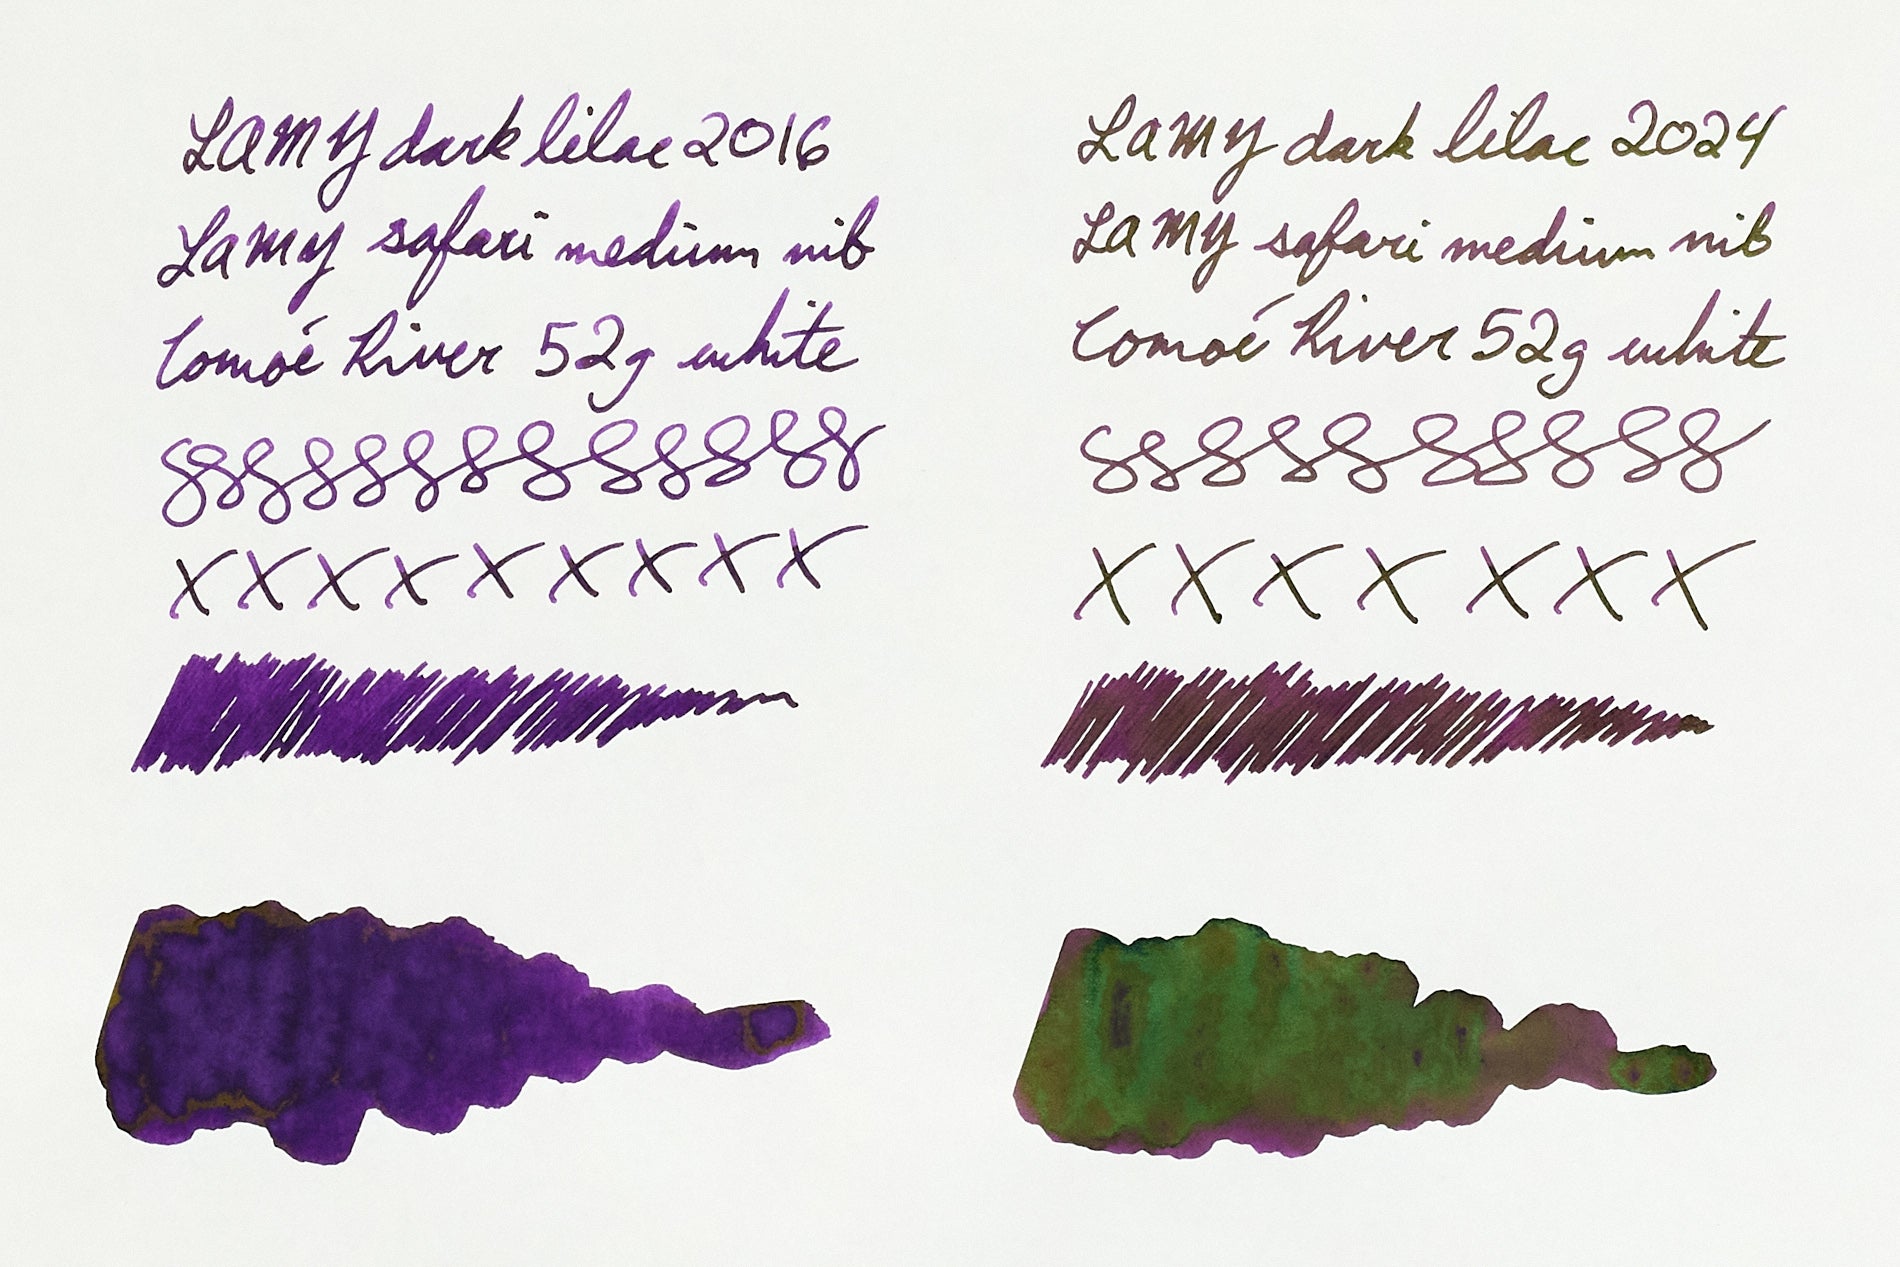 LAMY dark lilac 2016
LAMY safari medium nib
Tomoé River 52g white
xxxxxxxxx
LAMY dark lilac 2024
LAMY safari medium nib
Tomoé River 52g white
xxxxxxx